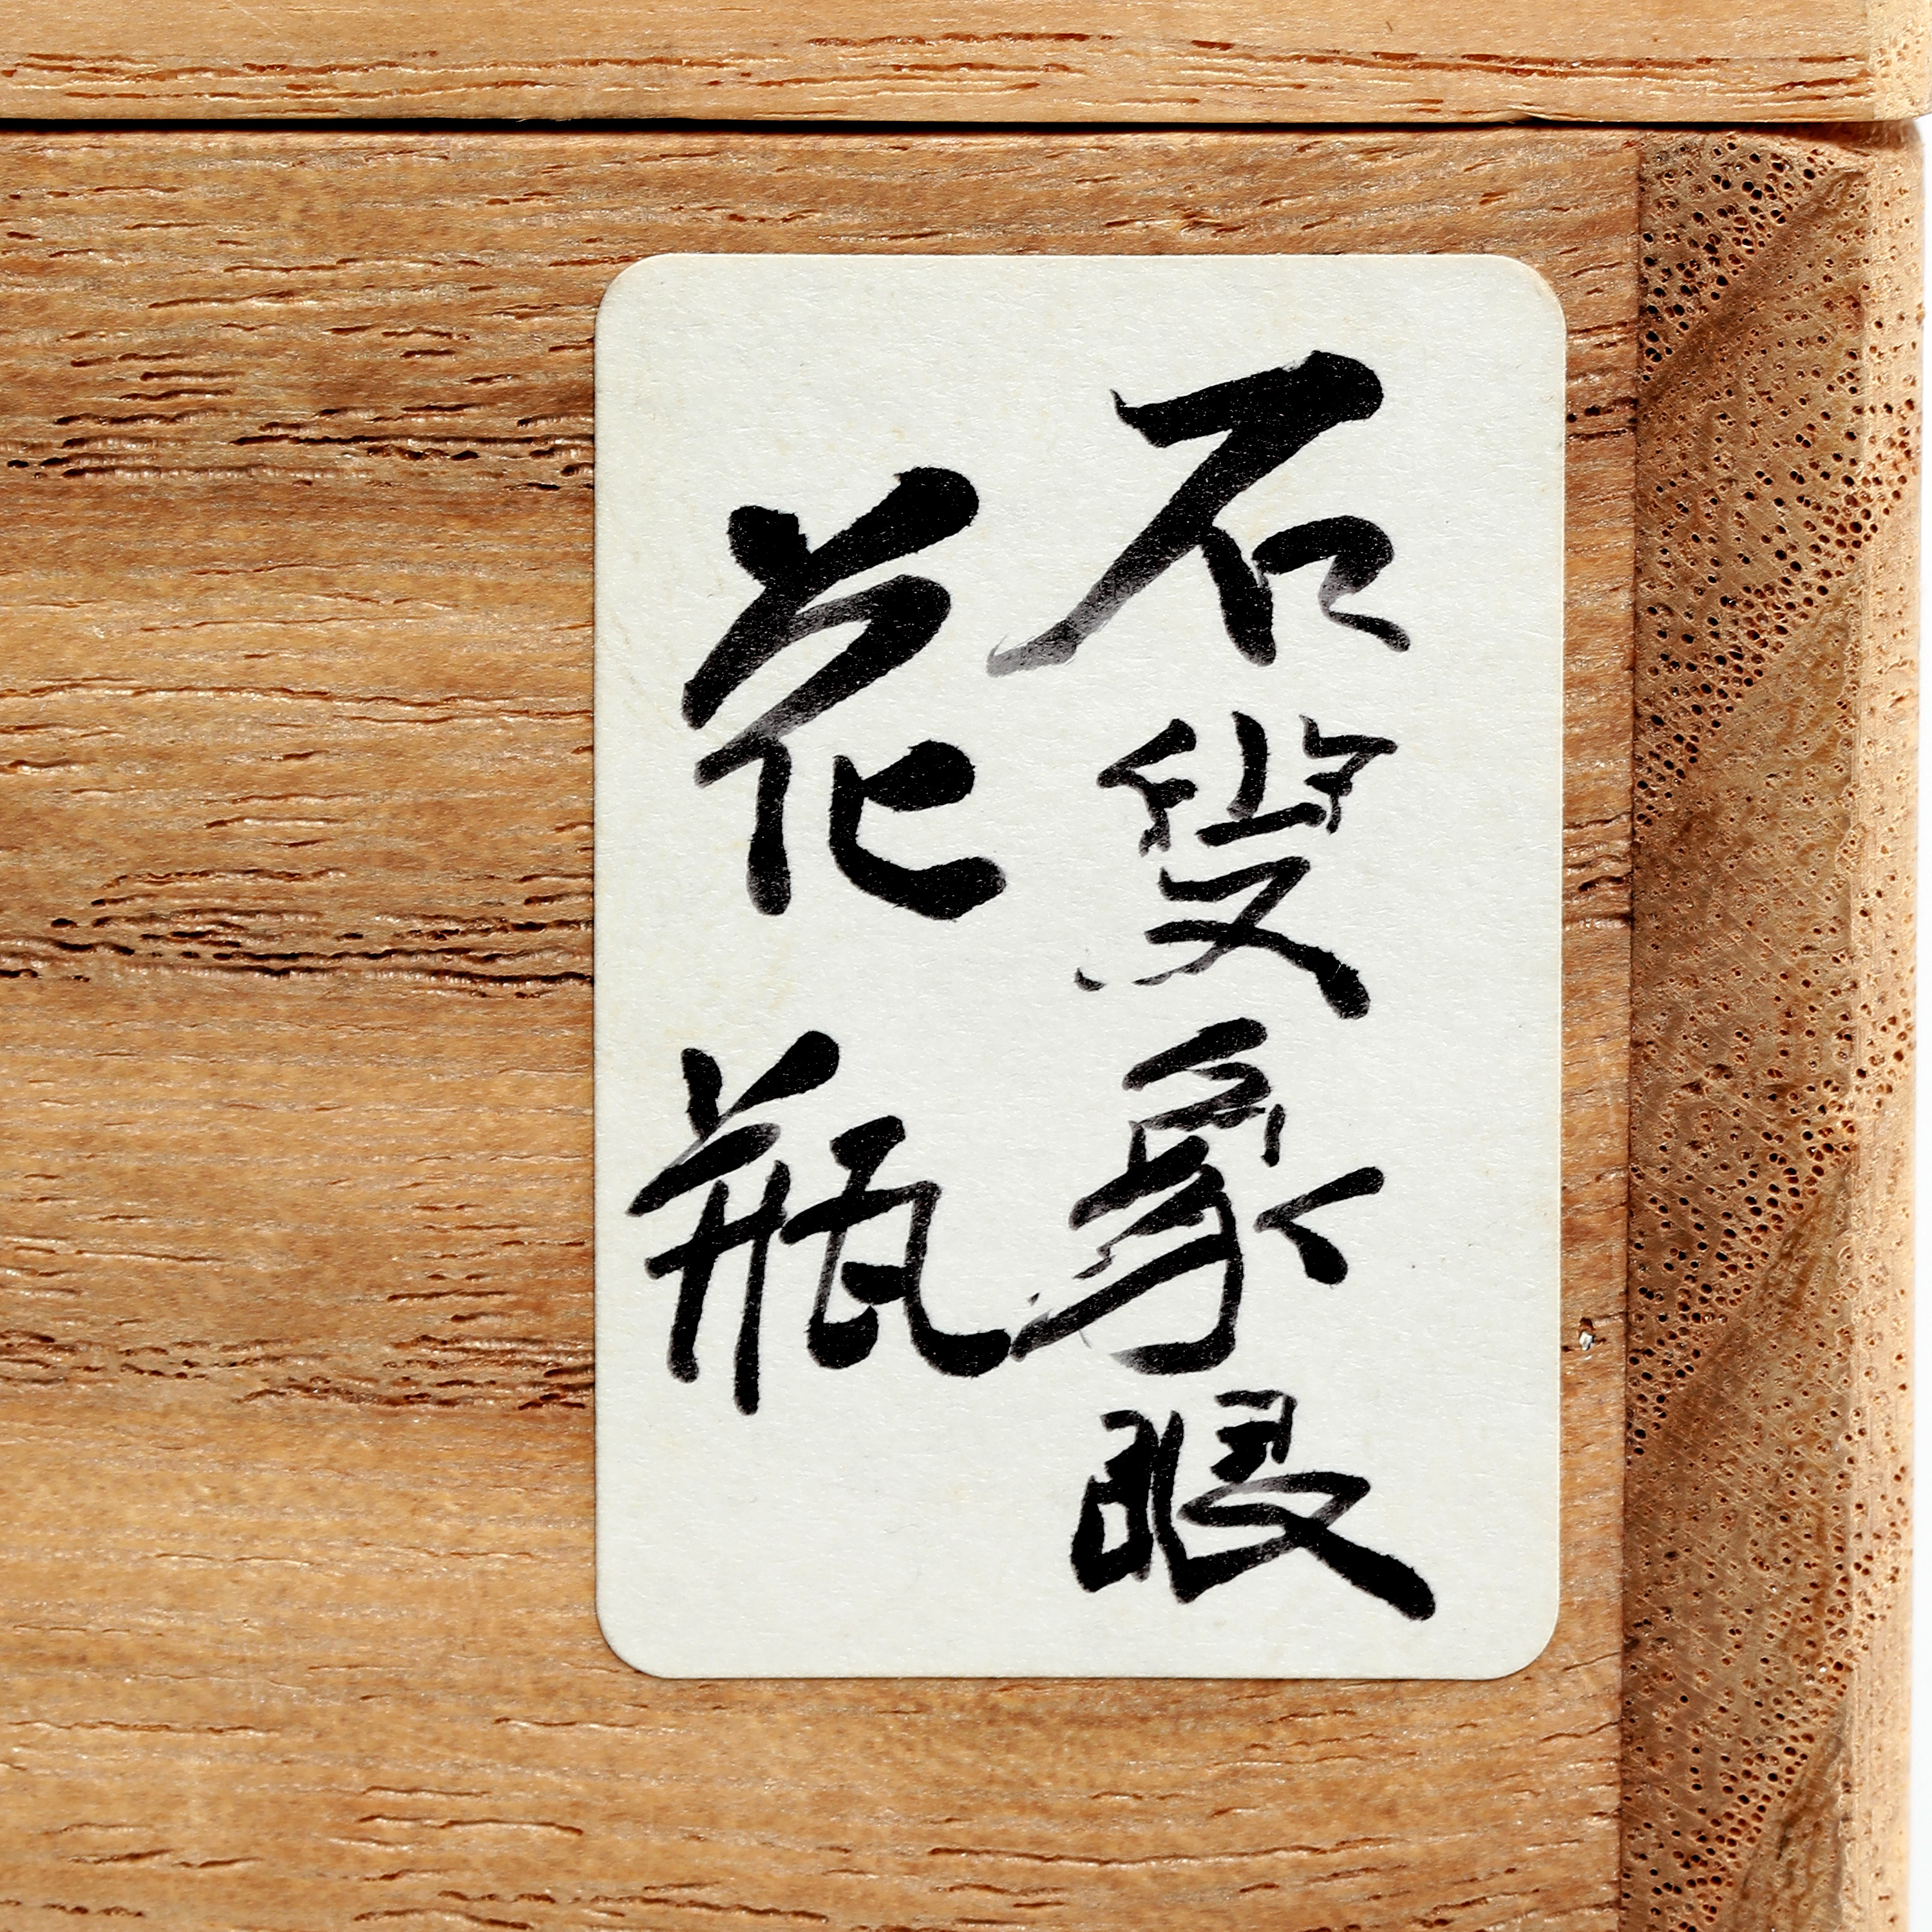 石叟象眼
花瓶